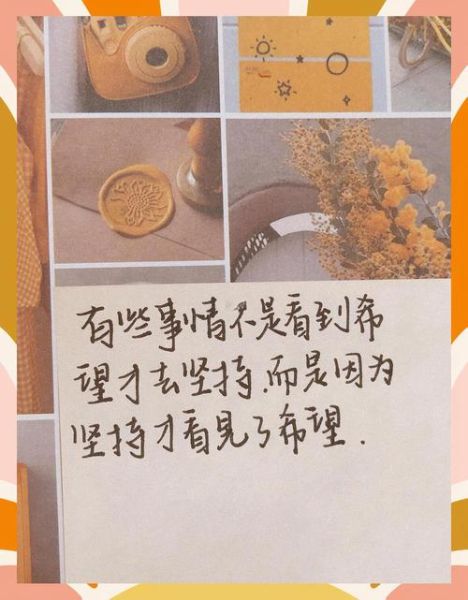 有些事情不是看到希
望才去坚持.而是因为
坚持才看見了希望.